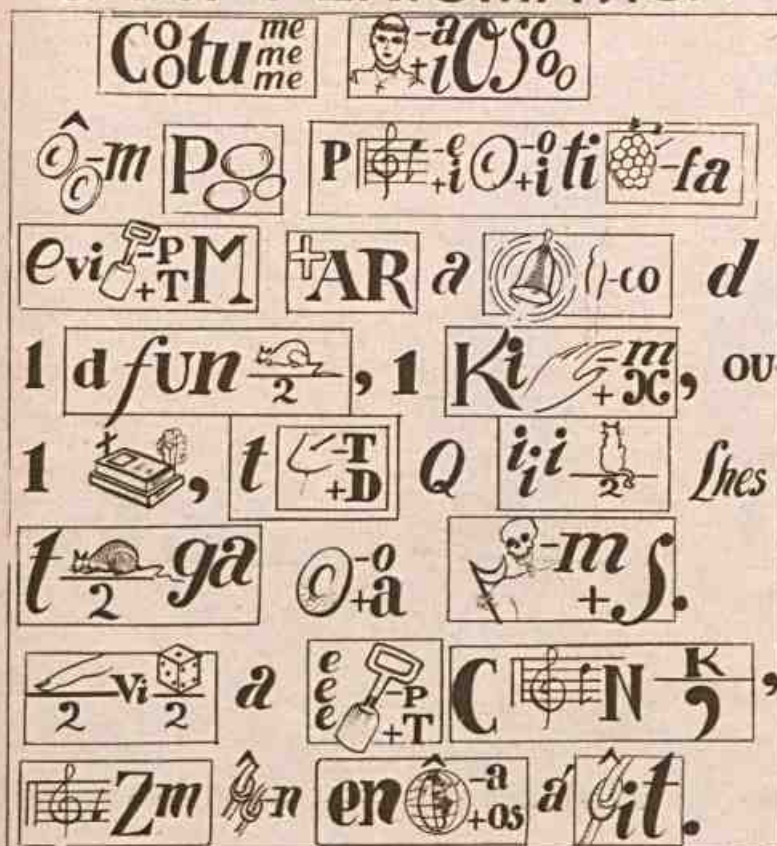 Cootu me me me -a +i OSooo
c c -m P P -e +i c -o +i ti -fa
evi -P +T M +AR a -co d
1 d fun 2, 1 Ki -m +x, ou
1, t -T +D Q iii 2 lhes
t 2 ga c -o +a -m +s.
2 vi 2 a e e e -P +T C N K ,,
Zm -n en -a +os á it.